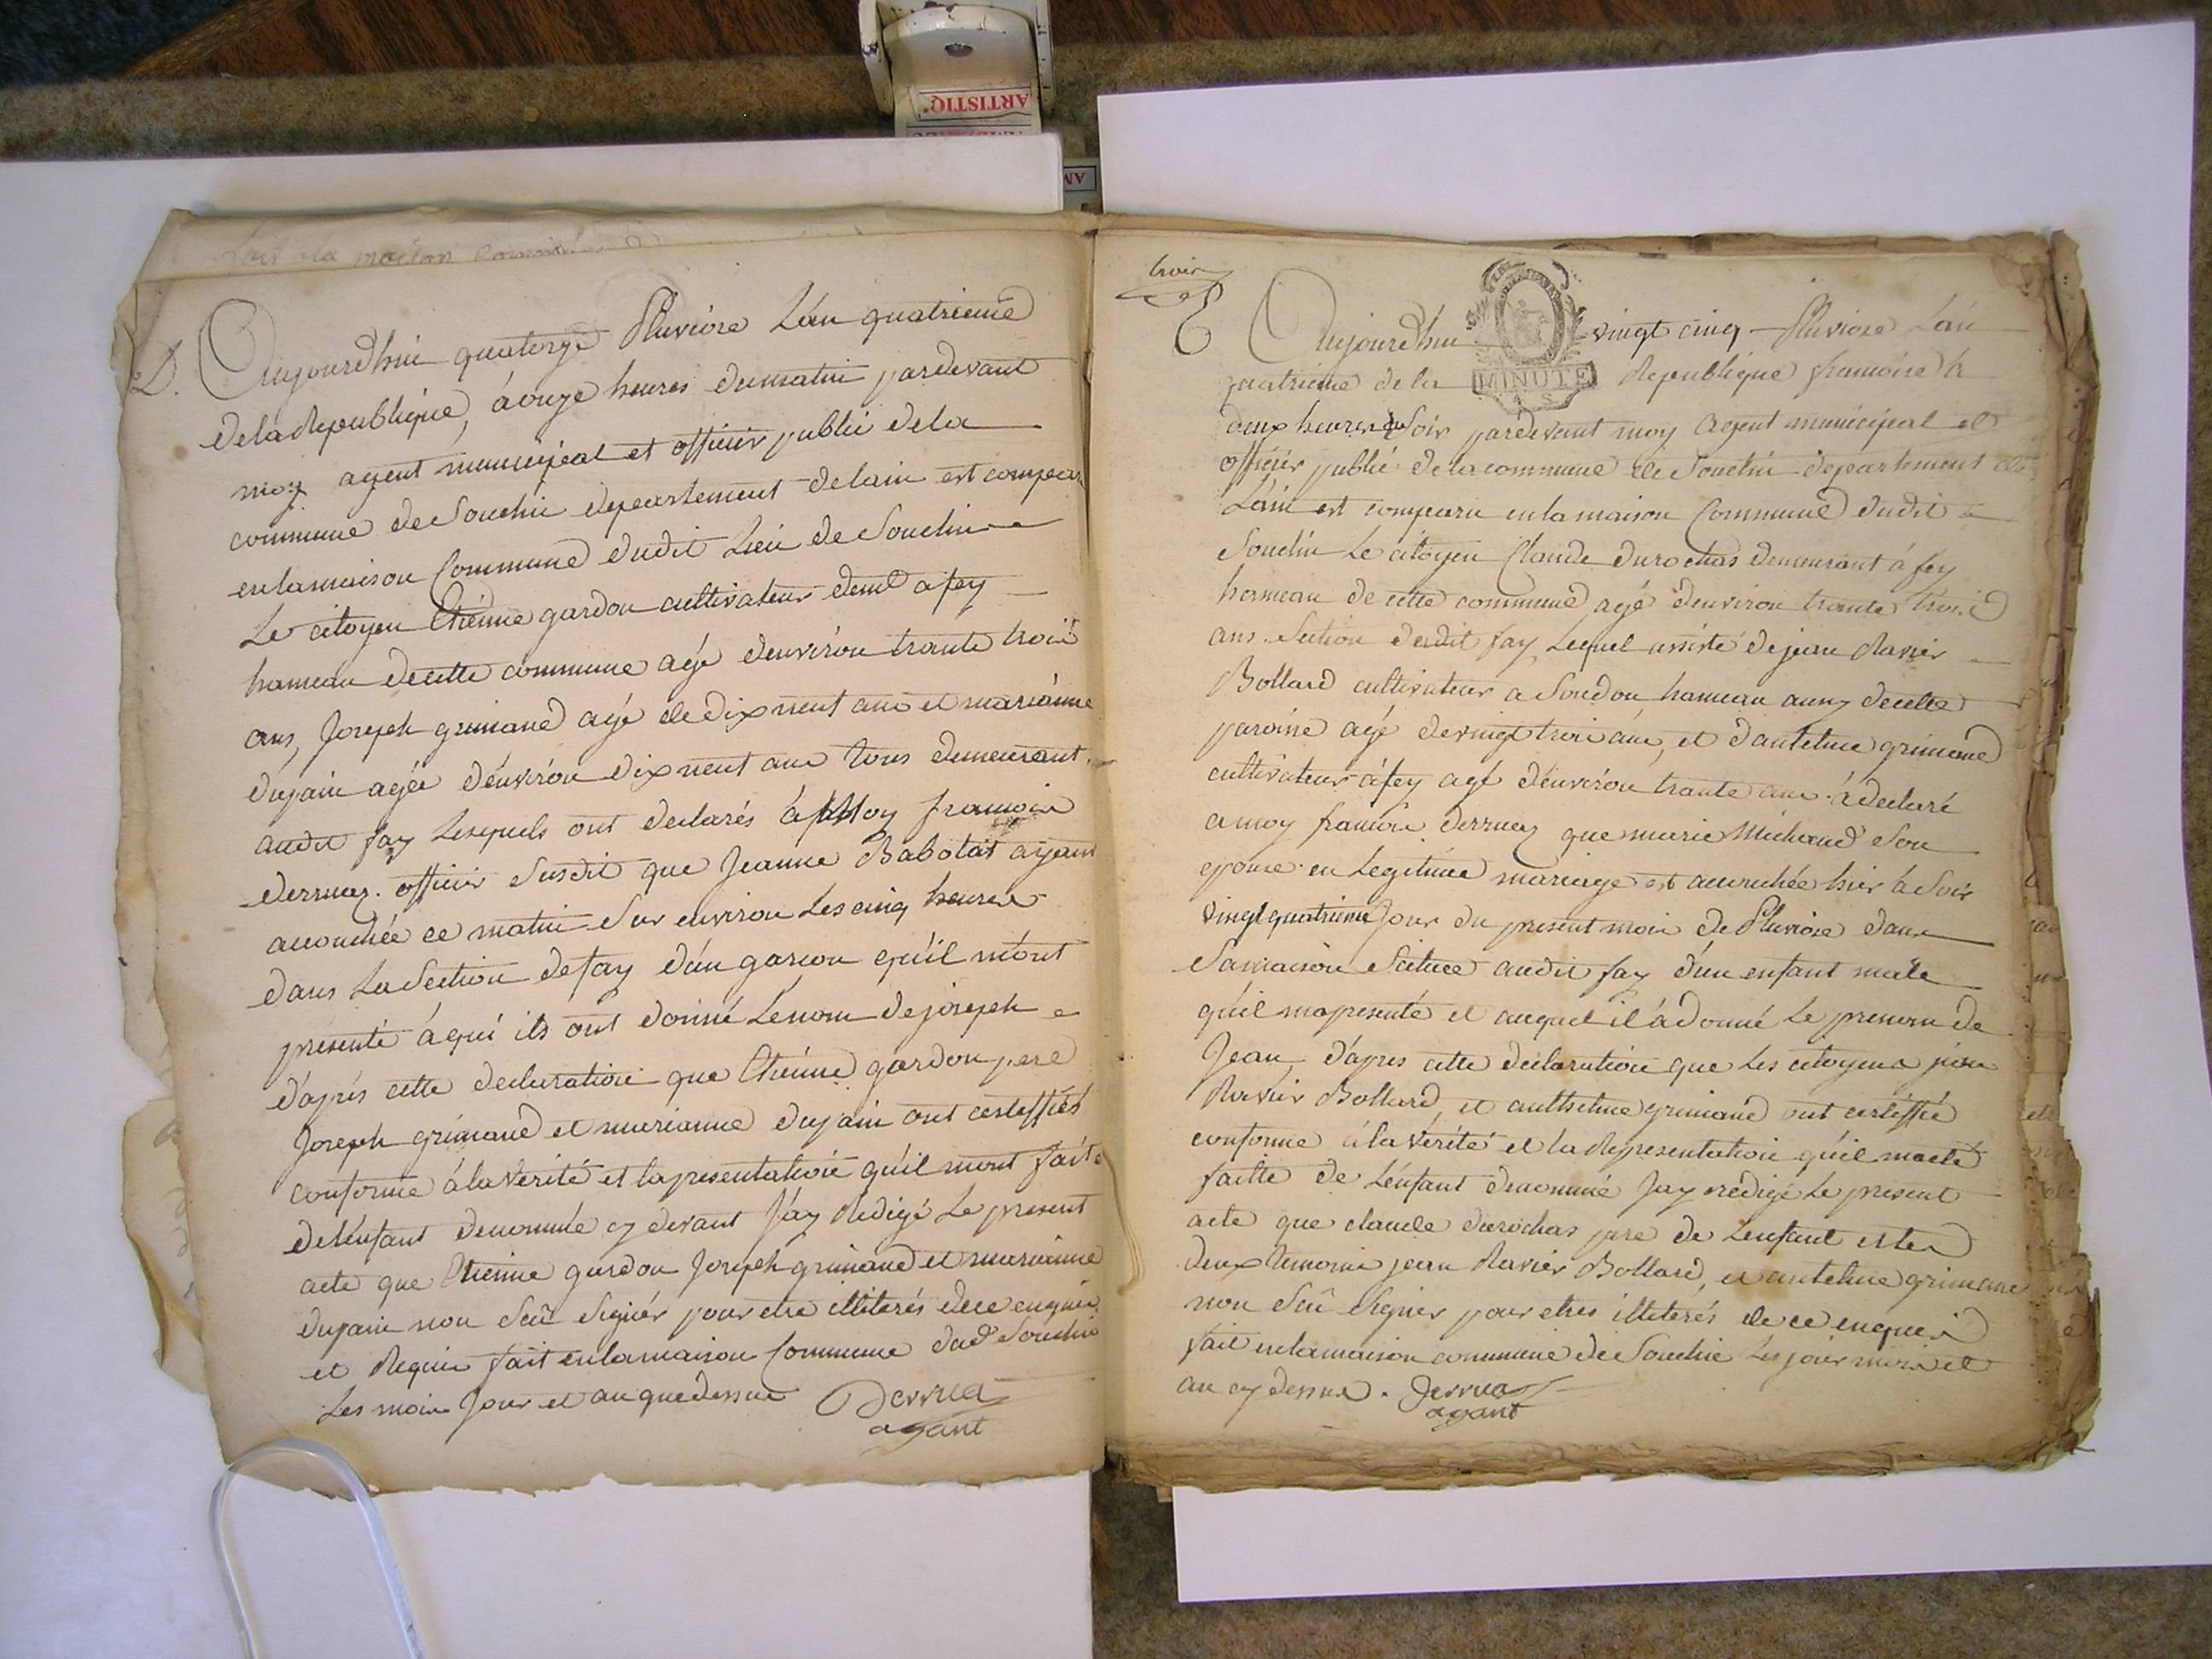 ARTISTIQ
AM
D.
Aujourdhui quatorze Pluviose Lan quatrieme
de la Republique, à onze heures du matin pardevant
moy agent municipal et officier public de la
commune de Souclin departement de lain est comparu
en la maison Commune dudit Lieu de Souclin
Le citoyen Etienne gardon cultivateur demt a fey
hameau de cette commune agé denviron trante trois
ans, Joseph grimand agé de dix neuf ans et marianne
dujain agée denviron dix neuf ans tous demeurant
audit fay Lesquels ont declarés à Moy francois
derruaz officier Susdit que Jeanne Babolat ayant
accouchée ce matin Sur environ Les cinq heures
dans La Section de fay d'un garcon quil mont
presenté à qui ils ont donné Le nom de joseph
d'aprés cette declaration que Etienne gardon pere
Joseph grimand et marianne dujain ont certiffiés
conforme à la Verité et la presentation qu'il mont faite
de l'enfant denommé cy devant J'ay Redigé Le present
acte que Etienne gardon Joseph grimand et marianne
dujain non Sçû Signér pour etre illiterés de ce enquis
et Requis fait en la maison Commune dud Souclin
Les mois Jour et an que dessus Derrua
agant
trois
E
Aujourdhui vingt cinq Pluviose Lan
quatrieme de la Republique francoise à
MINUTE
deux heures du Soir pardevant moy Agent municipal et
officier public de la commune de Souclin departement de
Lain est comparu en la maison Commune dudit
Souclin Le citoyen Claude durochas demeurant à fey
hameau de cette commune agé denviron trante trois
ans Section dudit fay, Lequel assisté de jean Ravier
Bollard cultivateur a Soudon hameau aussy de cette
paroisse agé de vingt trois ans, et d'antelme grimand
cultivateur à fey agé denviron trante ans à declaré
a moy francois derruaz que marie Michaud Son
epouse en Legitime mariage est accouchée hier à Soir
vingt quatrieme Jour du present mois de Pluviose dans
Sa maison Scituée audit fay d'un enfant male
qu'il ma presenté et auquel il à donné Le prenom de
Jean, d'apres cette declaration que Les citoyens jean
Ravier Bollard, et anthelme grimand ont certiffié
conforme à la Verité et la Representation qu'il ma eté
faitte de L'enfant denommé Jay redigé Le present
acte que claude durochas pere de Lenfant et les
deux temoins jean Ravier Bollard, et antelme grimand
non Sçû Signer pour etres illiterés de ce enquis
fait en la maison commune de Souclin Les jour mois et
an cy dessus. Derrua
agant